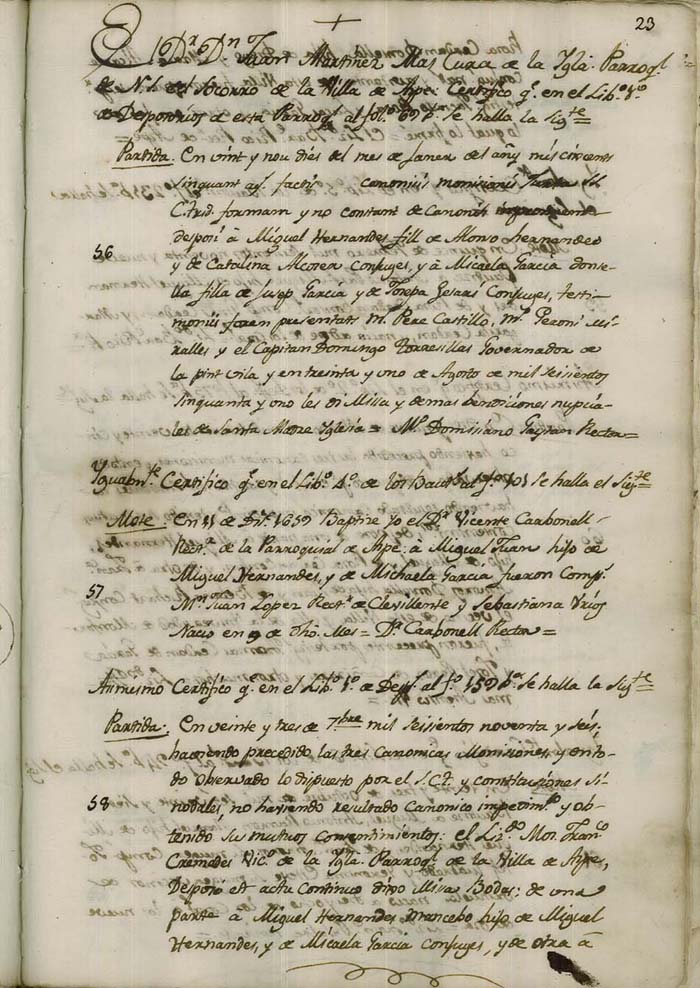 23
El Dr. Dn. Juan Martinez Mas Cura de la Ygla. Parroql.
de N. S. del Socorro de la Villa de Aspe: Certifico q. en el Lib.º 1.º
de Desposorios de esta Parroql. al fol.º 69 b. se halla la Sig.te
Partida. En vint y nou dies del mes de Janer del añy mil siscents
sinquant
Ctrid. formam y no constant de Canonich
despori à Miguel Hernandes fill de Alonso Hernandes
56
y de Catalina Alcorer Conjuges, y à Micaela Garcia donse-
lla filla de Jusep Garcia y de Josepa Conjuges, testi-
monis foren presentats Mº. Pere Castillo, Mº. Peroni Mi-
ralles y el Capitan Domingo Torresillas Governador de
la pnt vila y en treinta y uno de Agosto de mil seisientos
sinquanta y uno les di Missa y demas bendiciones nupcia-
les de Santa Madre Yglesia = Mº. Domissiano Gaytan Rector =
Ygualm.te Certifico q. en el Lib.º 4.º de los Baut. al f.º 101 se halla el Sig.te
Mote. En 11 de 1659 Baptize yo el Dr. Vicente Carbonell
Rect.r de la Parroquial de Aspe à Miguel Juan hijo de
Miguel Hernandes, y de Michaela Garcia fueron Comp.s
57
Mº. Juan Lopez Rect.r de Clevillente y Sebastiana Urios
Nacio en 9 de dho. Mes = Dr. Carbonell Rector =
Asimesmo Certifico q. en el Lib.º 1.º de Desp.s al f.º 159 b.ta se halla la Sig.te
Partida: En veinte y tres de 7bre mil seisientos noventa y seis,
haviendo precedido las tres Canonicas Monisiones, y en to-
do observado lo dispuesto por el S. C. T. y constitusiones Si-
58
nodales, no haviendo resultado Canonico impedim.to y ob-
tenido sus mutuos consentimientos: el Liz.do Mos. Fran.co
Cremades Vic.º de la Ygla. Parroql. de la Villa de Aspe,
Desposó et actu continuo dixo Missa Bodas: de una
parte à Miguel Hernandes Mancebo hijo de Miguel
Hernandes, y de Micaela Garcia Conjuges, y de otra à